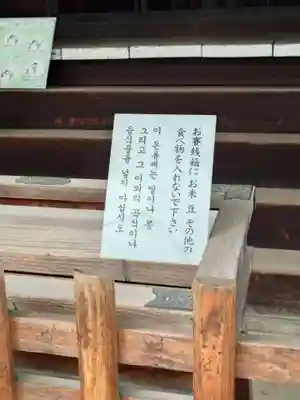 お賽銭箱に お米 豆 その他の
食べ物を入れないで下さい
이 돈통에는 쌀이나 콩
그리고 그 이외의 곡식이나
음식물을 넣지 마십시오